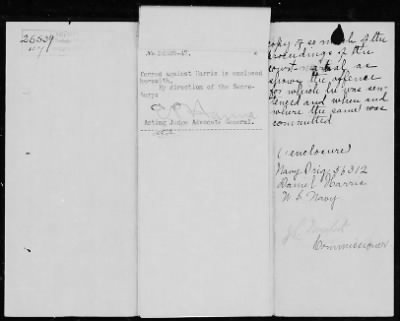 26559
No. 26559-47.
ferred against Harris is enclosed
herewith.
By direction of the Secre-
tary:
Acting Judge Advocate General.
copy of so much of the
proceedings of the
court martial as
shows the offense
for which he was sen-
tenced and when and
where the same was
committed
1 enclosure
Navy Orig. 36312
Daniel Harris
U S Navy
Commissioner